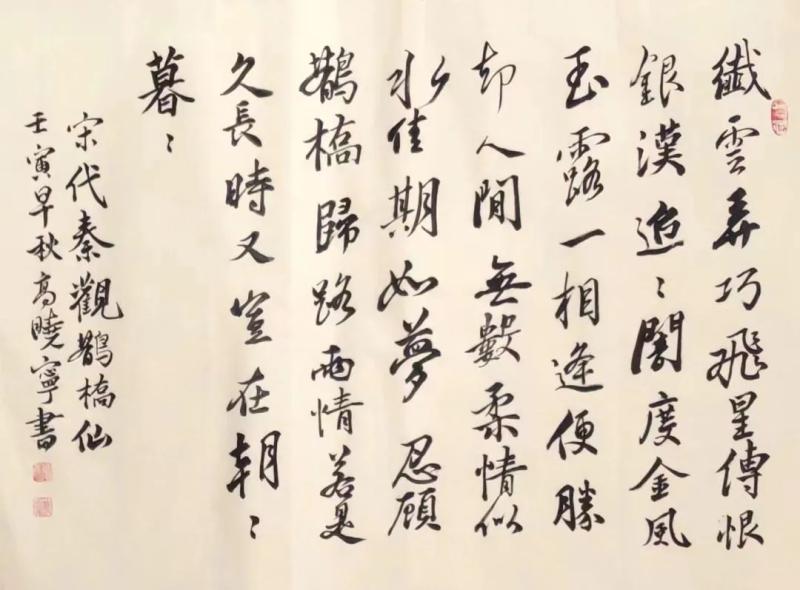 纖雲弄巧飛星傳恨
銀漢迢〻闇度金風
玉露一相逢便勝
却人間無數柔情似
水佳期如夢忍顧
鵲橋歸路兩情若是
久長時又豈在朝〻
暮〻
宋代秦觀鵲橋仙
壬寅早秋高曉寧書